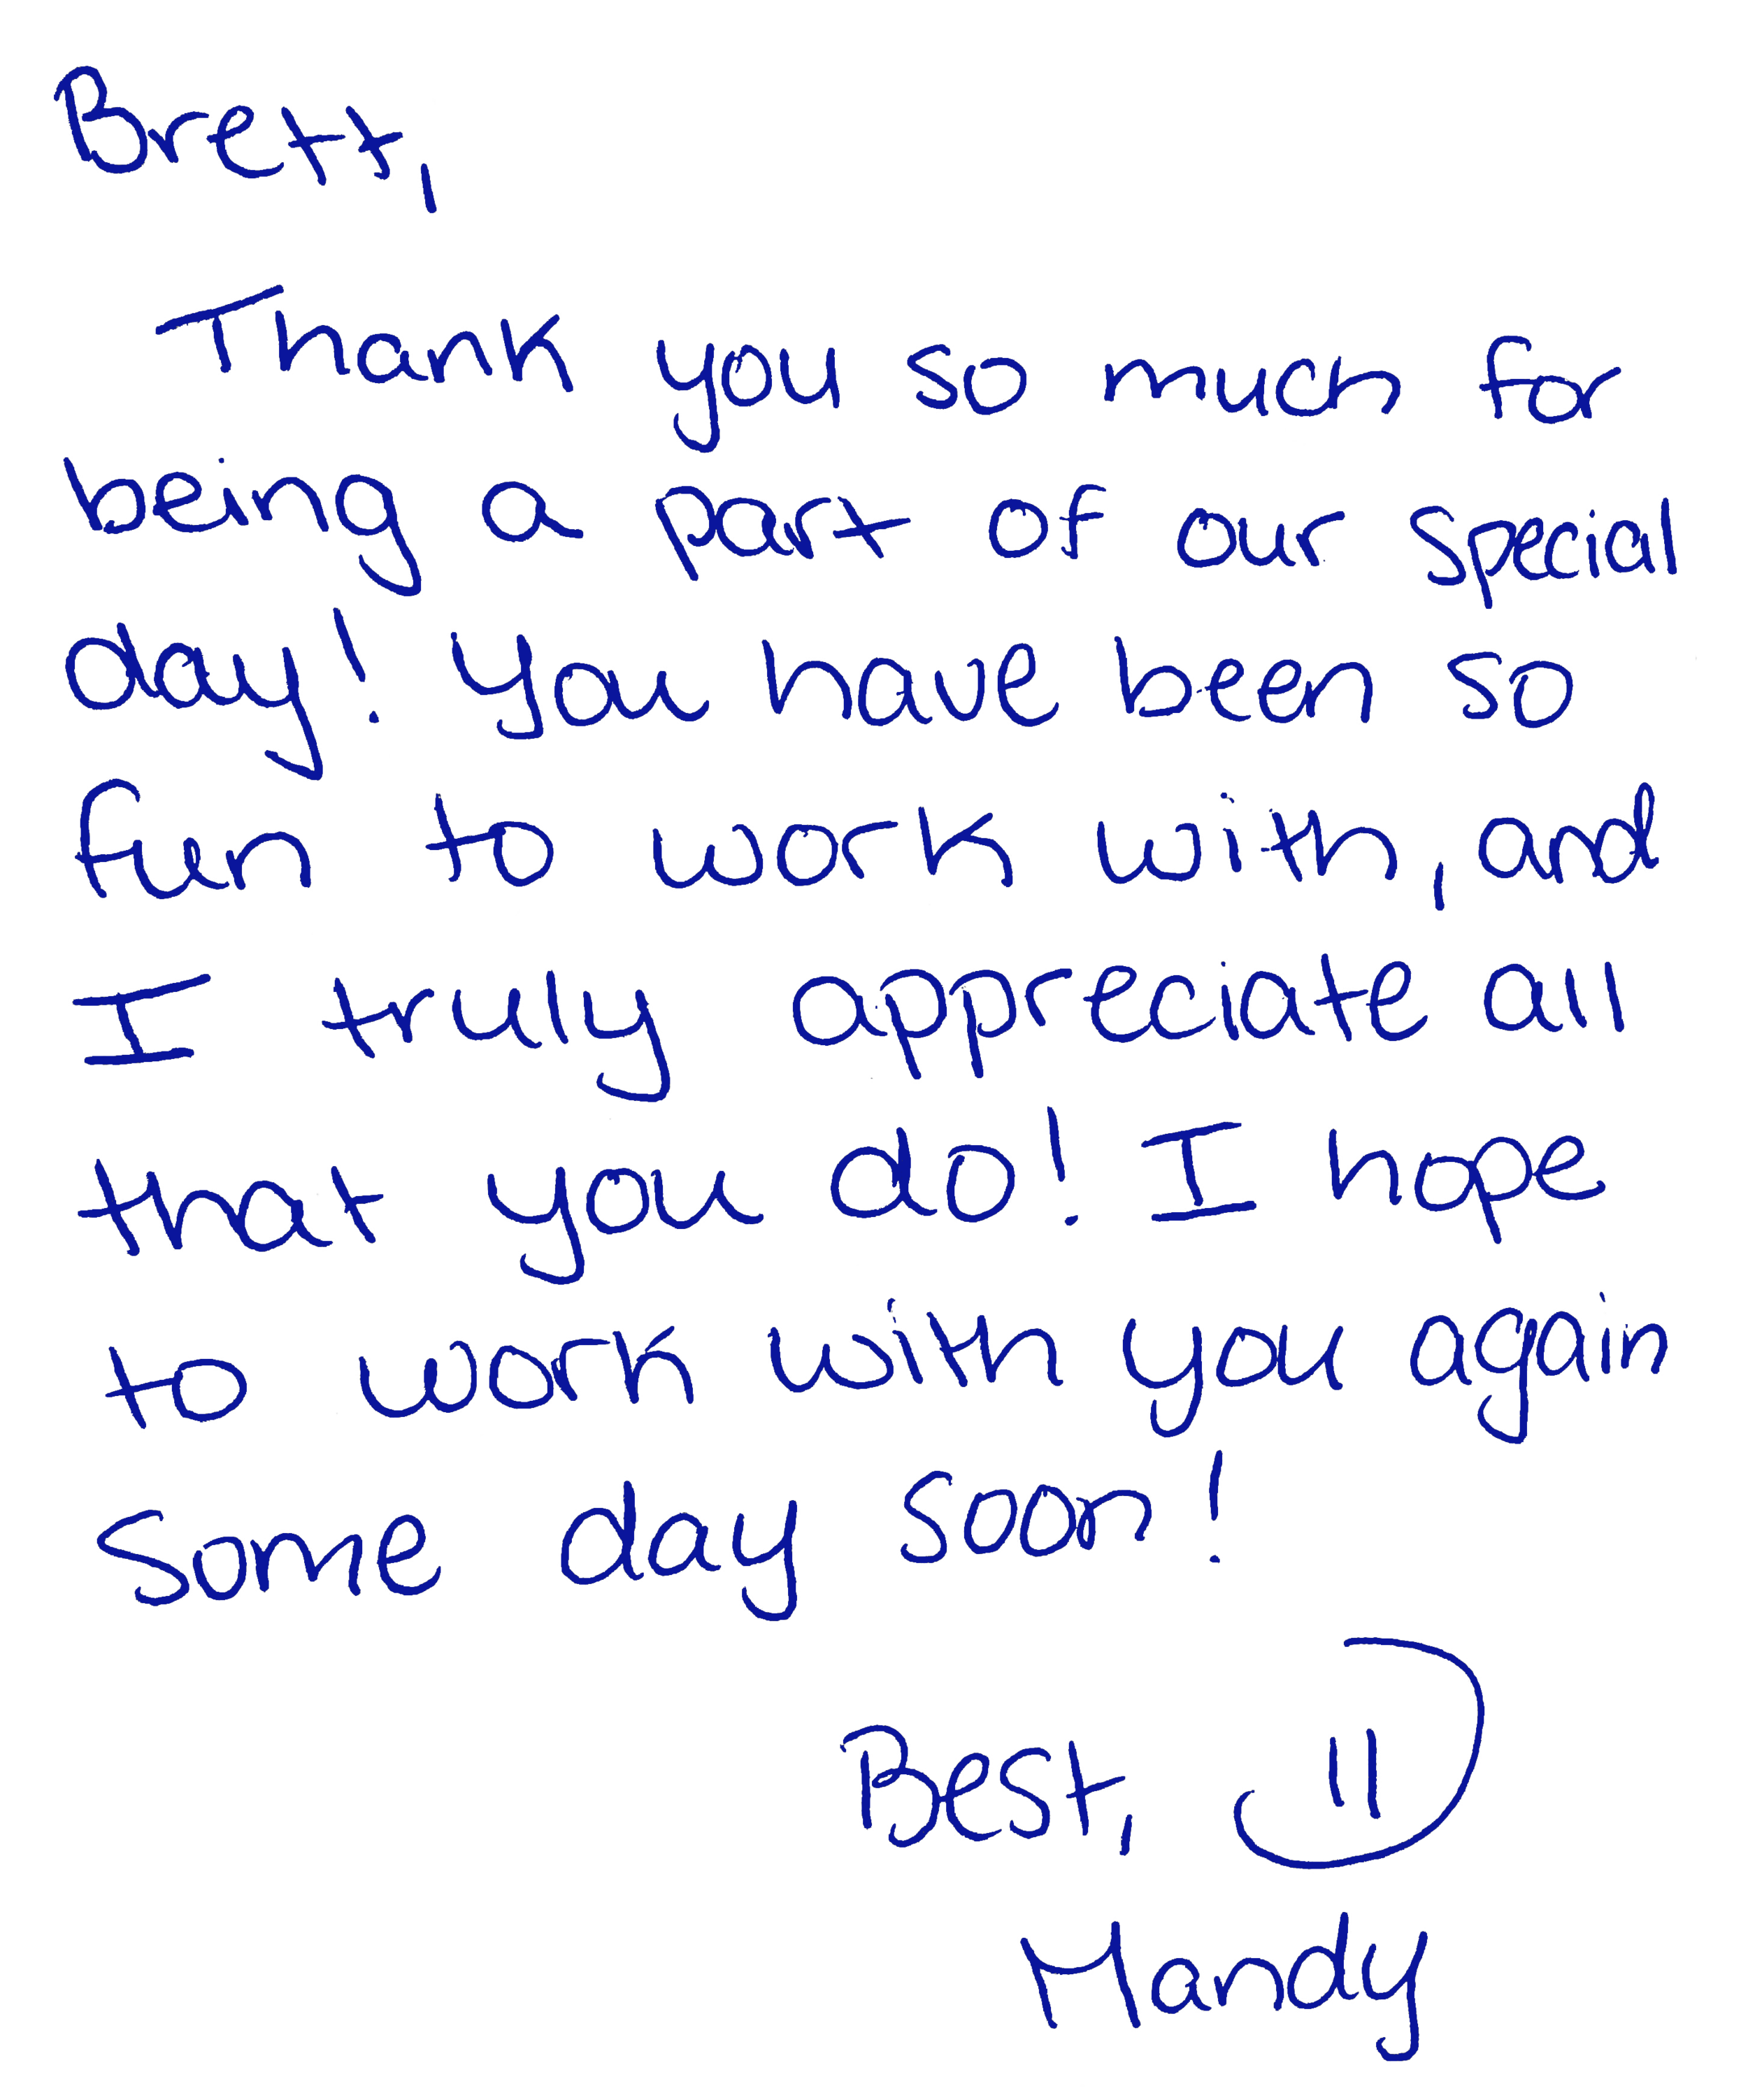 Brett,
Thank you so much for
being a part of our special
day! You have been so
fun to work with, and
I truly appreciate all
that you do! I hope
to work with you again
some day soon!
Best,
Mandy